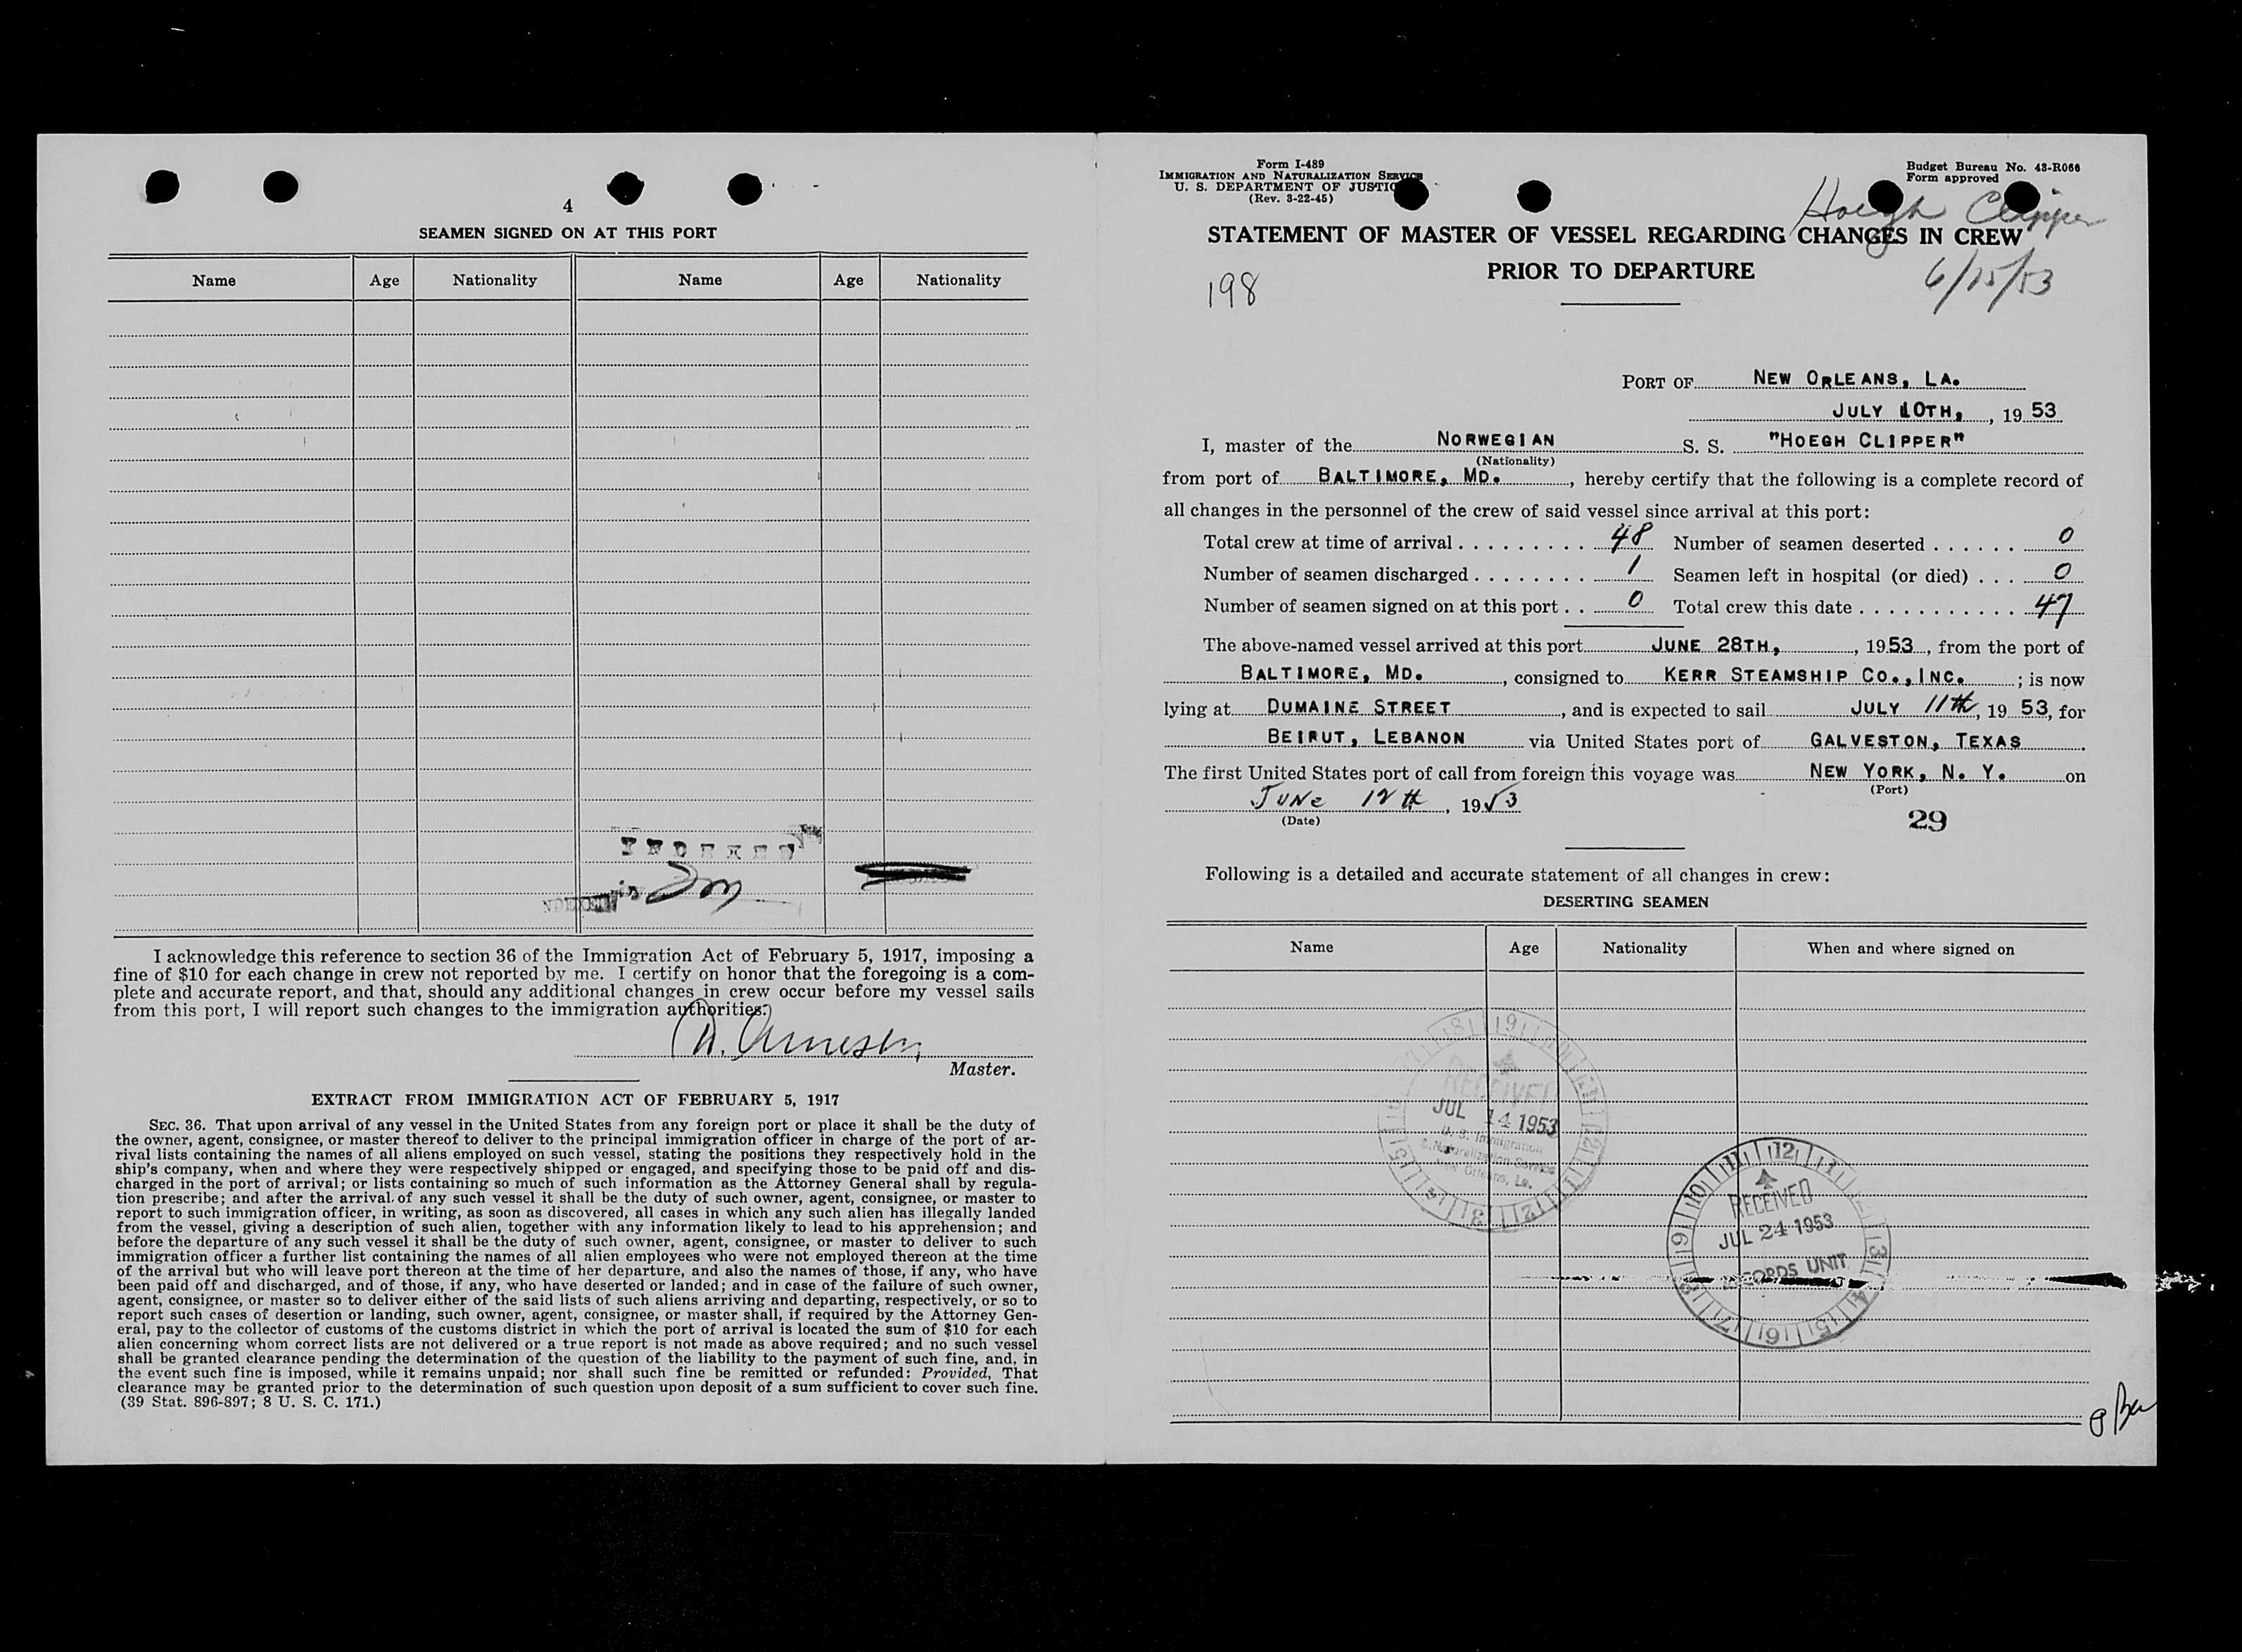 4
SEAMEN SIGNED ON AT THIS PORT
Name Age Nationality Name Age Nationality
INDEXED
I acknowledge this reference to section 36 of the Immigration Act of February 5, 1917, imposing a
fine of $10 for each change in crew not reported by me. I certify on honor that the foregoing is a com-
plete and accurate report, and that, should any additional changes in crew occur before my vessel sails
from this port, I will report such changes to the immigration authorities.
Master.
EXTRACT FROM IMMIGRATION ACT OF FEBRUARY 5, 1917
SEC. 36. That upon arrival of any vessel in the United States from any foreign port or place it shall be the duty of
the owner, agent, consignee, or master thereof to deliver to the principal immigration officer in charge of the port of ar-
rival lists containing the names of all aliens employed on such vessel, stating the positions they respectively hold in the
ship's company, when and where they were respectively shipped or engaged, and specifying those to be paid off and dis-
charged in the port of arrival; or lists containing so much of such information as the Attorney General shall by regula-
tion prescribe; and after the arrival of any such vessel it shall be the duty of such owner, agent, consignee, or master to
report to such immigration officer, in writing, as soon as discovered, all cases in which any such alien has illegally landed
from the vessel, giving a description of such alien, together with any information likely to lead to his apprehension; and
before the departure of any such vessel it shall be the duty of such owner, agent, consignee, or master to deliver to such
immigration officer a further list containing the names of all alien employees who were not employed thereon at the time
of the arrival but who will leave port thereon at the time of her departure, and also the names of those, if any, who have
been paid off and discharged, and of those, if any, who have deserted or landed; and in case of the failure of such owner,
agent, consignee, or master so to deliver either of the said lists of such aliens arriving and departing, respectively, or so to
report such cases of desertion or landing, such owner, agent, consignee, or master shall, if required by the Attorney Gen-
eral, pay to the collector of customs of the customs district in which the port of arrival is located the sum of $10 for each
alien concerning whom correct lists are not delivered or a true report is not made as above required; and no such vessel
shall be granted clearance pending the determination of the question of the liability to the payment of such fine, and, in
the event such fine is imposed, while it remains unpaid; nor shall such fine be remitted or refunded: Provided, That
clearance may be granted prior to the determination of such question upon deposit of a sum sufficient to cover such fine.
(39 Stat. 896-897; 8 U. S. C. 171.)
Form I-489
IMMIGRATION AND NATURALIZATION SERVICE
U. S. DEPARTMENT OF JUSTICE
(Rev. 3-22-45)
Budget Bureau No. 43-R066
Form approved
Hoegh Clipper
STATEMENT OF MASTER OF VESSEL REGARDING CHANGES IN CREW
PRIOR TO DEPARTURE
6/15/53
198
PORT OF NEW ORLEANS, LA.
JULY 10TH, , 19 53
I, master of the NORWEGIAN S. S. "HOEGH CLIPPER"
(Nationality)
from port of BALTIMORE, MD. , hereby certify that the following is a complete record of
all changes in the personnel of the crew of said vessel since arrival at this port:
Total crew at time of arrival . . . . . . . . . . 48 Number of seamen deserted . . . . . . 0
Number of seamen discharged . . . . . . . . 1 Seamen left in hospital (or died) . . . 0
Number of seamen signed on at this port . . 0 Total crew this date . . . . . . . . . . . 47
The above-named vessel arrived at this port JUNE 28TH, , 1953 , from the port of
BALTIMORE, MD. , consigned to KERR STEAMSHIP CO., INC. ; is now
lying at DUMAINE STREET , and is expected to sail JULY 11th , 19 53, for
BEIRUT, LEBANON via United States port of GALVESTON, TEXAS .
The first United States port of call from foreign this voyage was NEW YORK, N. Y. on
(Port)
JUNE 12th , 1953
(Date)
29
Following is a detailed and accurate statement of all changes in crew:
DESERTING SEAMEN
Name Age Nationality When and where signed on
RECEIVED
JUL 14 1953
U. S. Immigration
& Naturalization Service
New Orleans, La.
RECEIVED
JUL 24 1953
RECORDS UNIT